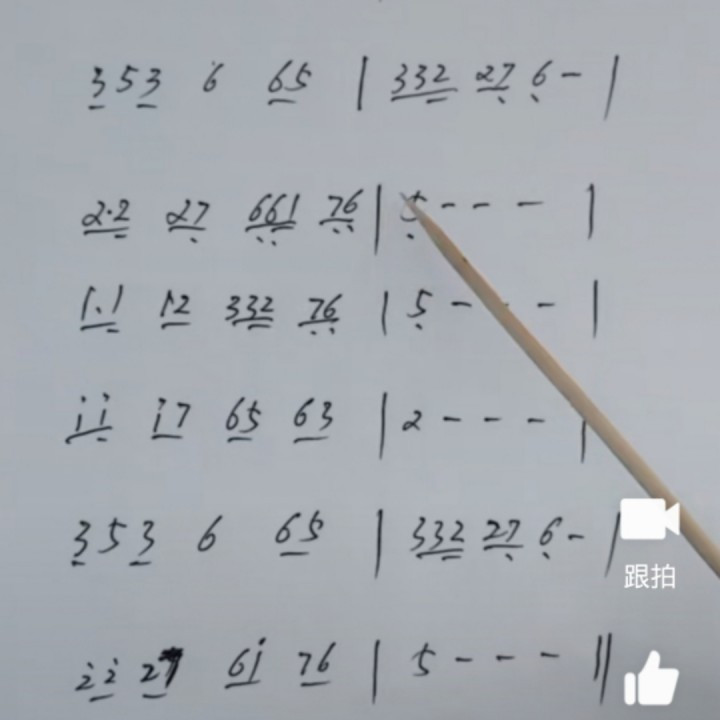 353 6 65 | 332 27 6 - |
2·2 27 661 76 | 5 - - - |
1·1 12 332 76 | 5 - - - |
i i i 7 65 63 | 2 - - - |
353 6 65 | 332 27 6 - |
跟拍
2̇ 2̇ 2 6i 76 | 5 - - - ||